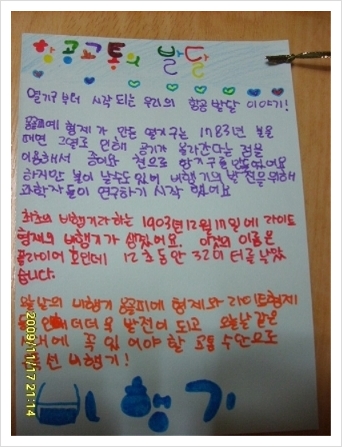 항공교통의 발달
열기구부터 시작되는 우리의 항공 발달 이야기!
몽골피에 형제가 만든 열기구는 1783년 불을
때면 그열로 인해 공기가 올라간다는 점을
이용해서 종이와 천으로 열기구를 만들었어요
하지만 불이 날수도있어 비행기의 발전을위해
과학자들이 연구하기 시작 했어요
최초의 비행기라하는 1903년12월17일에 라이트
형제의 비행기가 생겼어요. 이것의 이름은
플라이어 호인데 12초동안 32미터를 날았
습니다.
오늘날의 비행기 몽골피에 형제와 라이트형제
로 인해 더더욱 발전이 되고 오늘날 같은
때에 꼭 있어야 할 교통수단으로
선 비행기!
비행기
2009/11/17 21:14